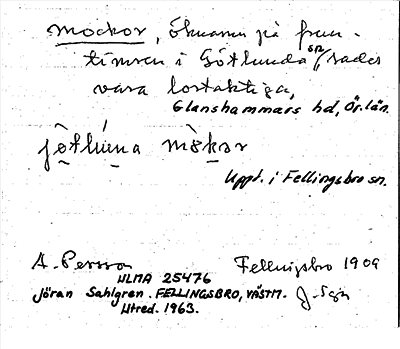 mockor, öknamn på frun-
timren i Götlunda sn, sades
vara lortaktiga,
Glanshammars hd, Ör. län.
mòkar
Uppt. i Fellingsbro sn.
A. Persson Fellingsbro 1909
ULMA 25476
Jöran Sahlgren. FELLINGSBRO, VÄSTM. J. Sgn
Utred. 1963.